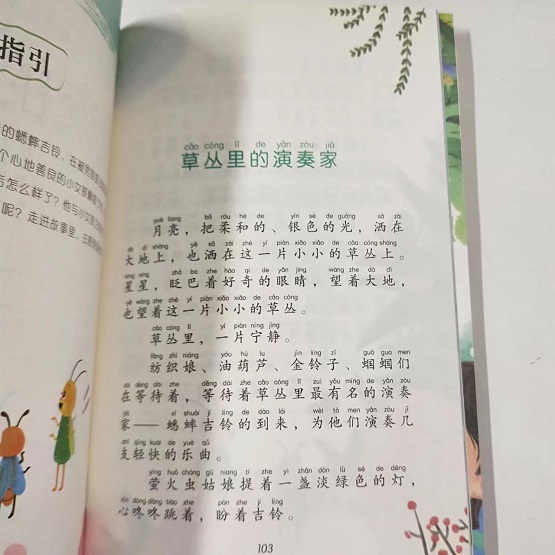 指引
的蟋蟀吉铃，在被
个心地善良的小女孩
后怎么样了？他与小女
呢？走进故事里，去
cǎo cóng lǐ de yǎn zòu jiā
草丛里的演奏家
yuè liang bǎ róu hé de yín sè de guāng sǎ zài
月亮，把柔和的、银色的光，洒在
dà dì shàng yě sǎ zài zhè yí piàn xiǎo xiǎo de cǎo cóng shàng
大地上，也洒在这一片小小的草丛上。
xīng xing zhǎ ba zhe hào qí de yǎn jing wàng zhe dà dì
星星，眨巴着好奇的眼睛，望着大地，
yě wàng zhe zhè yí piàn xiǎo xiǎo de cǎo cóng
也望着这一片小小的草丛。
cǎo cóng lǐ yí piàn níng jìng
草丛里，一片宁静。
fǎng zhī niáng yóu hú lu jīn líng zǐ guō guo men
纺织娘、油葫芦、金铃子、蝈蝈们
zài děng dài zhe děng dài zhe cǎo cóng lǐ zuì yǒu míng de yǎn zòu
在等待着，等待着草丛里最有名的演奏
jiā xī shuài jí líng de dào lái wèi tā men yǎn zòu jǐ
家——蟋蟀吉铃的到来，为他们演奏几
zhī qīng kuài de yuè qǔ
支轻快的乐曲。
yíng huǒ chóng gū niang tí zhe yì zhǎn dàn lǜ sè de dēng
萤火虫姑娘提着一盏淡绿色的灯，
xīn dōng dōng tiào zhe pàn zhe jí líng
心咚咚跳着，盼着吉铃。
103